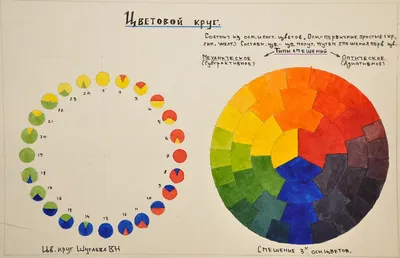 Цветовой круг.
Состоит из осн. и сост. цветов. Осн.- первичные простые (кр,
син, желт.) Составн. цв.- цв. получ. путем смешения перв. цв.
Типы смешений
Механическое
(Субтрактивное)
Оптическое
(Адитивное)
24
23
22
21
20
19
18
17
16
15
14
13
12
11
10
9
8
7
6
5
4
3
2
1
Цв. круг Шугаева ВН
Смешение 3х осн. цветов.